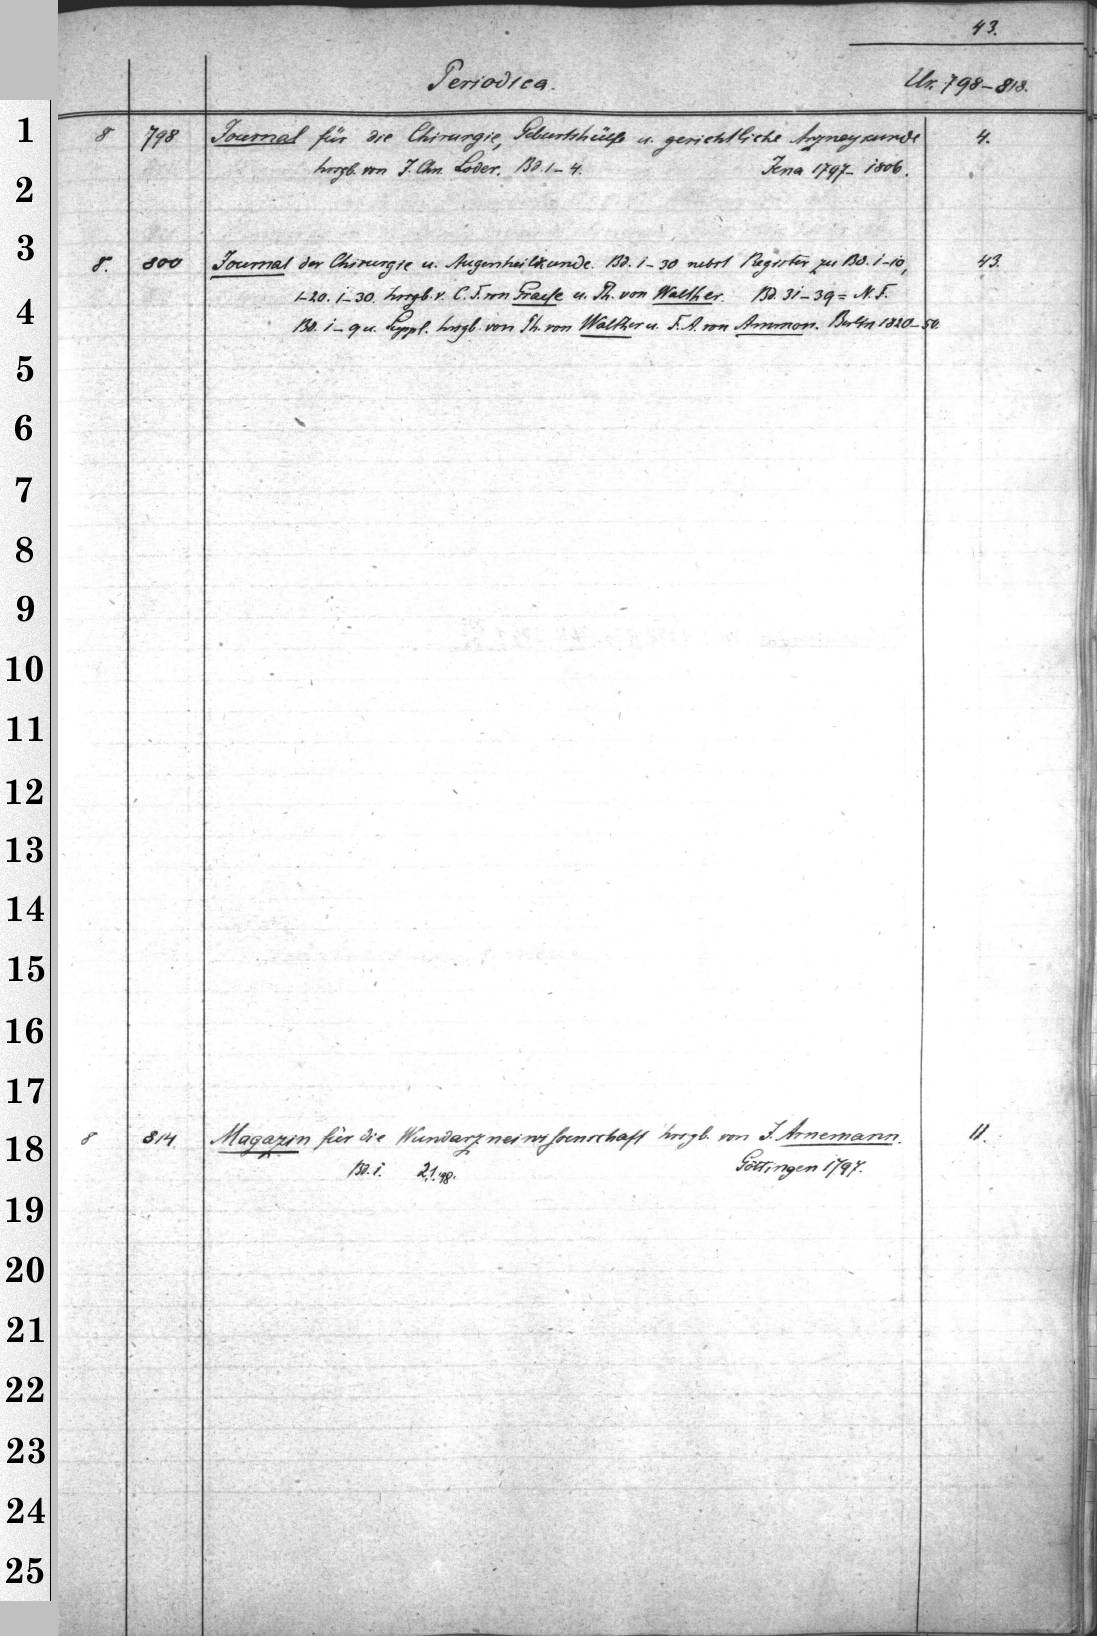 43.
Periodica. Ur. 798-818.
1 8 798 Journal für die Chirurgie, Geburtshülfe u. gerichtliche Arzneykunde 4.
2 hrsgb. von J. Chn. Loder. Bd. 1-4. Jena 1797-1806.
3 8. 800 Journal der Chirurgie u. Augenheilkunde. Bd. 1-30 nebst Register zu Bd. 1-10, 43.
4 1-20. 1-30. hrsgb. v. C. F. von Graefe u. Ph. von Walther. Bd. 31-39 = N. F.
Bd. 1-9 u. Suppl. hrsgb. von Ph. von Walther u. F. A. von Ammon. Berlin 1820-50.
5
6
7
8
9
10
11
12
13
14
15
16
17
18 8 814 Magazin für die Wundarzneiwissenschaft hrsgb. von J. Arnemann. 11.
Bd. 1. 2,1.98. Göttingen 1797.
19
20
21
22
23
24
25